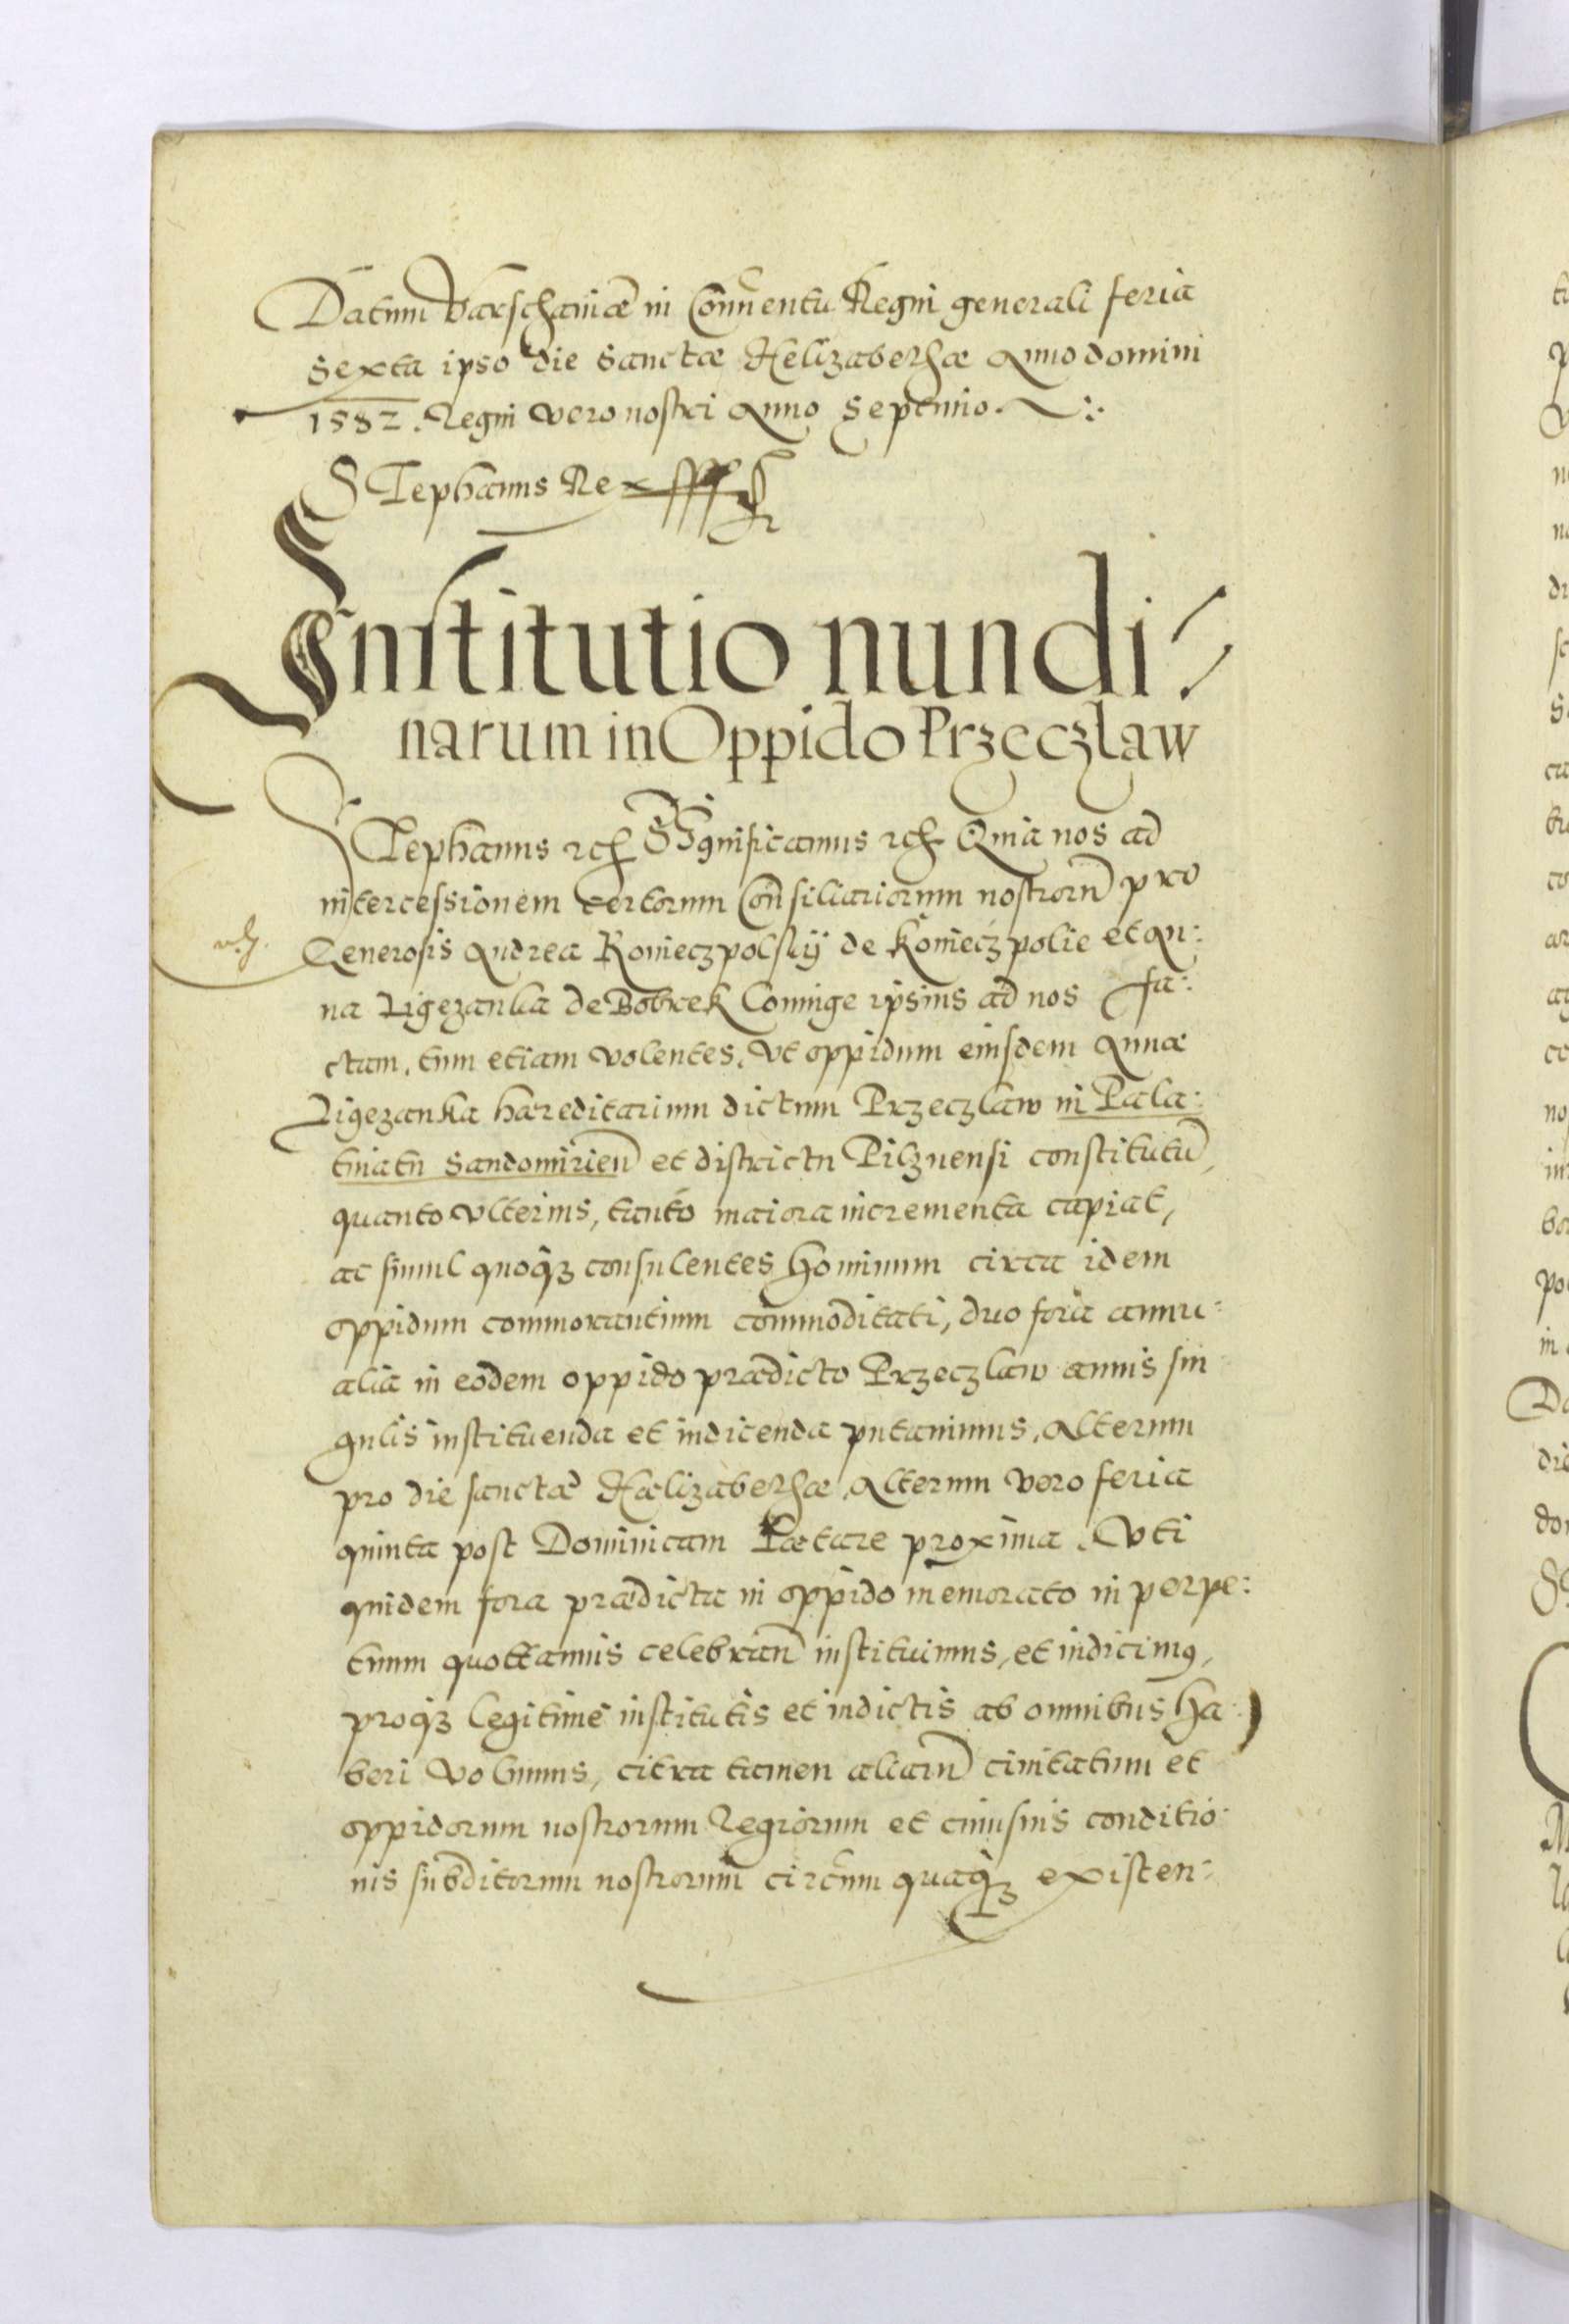 Datum Varschaviæ in Conventu Regni generali feria
sexta ipso die sanctæ Helizabethæ Anno domini
1582. Regni vero nostri Anno Septimo.
Stephanus Rex
Institutio nundi
narum in Oppido Przeczlaw
Stephanus etc. Significamus etc. Quia nos ad
intercessionem certorum Consiliariorum nostrorū pro
Generosis Andrea Konieczpolskÿ de Koniećzpolie et An:
na Ligezanka de Bobrek Coniuge ipsius ad nos fa:
ctam, tum etiam volentes, Vt oppidum eiusdem Annæ
Ligezanka hæreditarium dictum Przeczlaw in Pala:
tinatu Sandomirien̄ et districtu Pilznensi constitutū,
quanto vlterius, tanto maiora incrementa capiat,
ac simul quoqȝ consulentes hominum circa idem
oppidum commorantium commoditati, duo fora annu:
alia in eodem oppido prædicto Przeczlaw annis sin
gulis instituenda et indicenda putauimus, Alterum
pro die sanctæ Hælizabethæ, Alterum vero feria
quinta post Dominicam Lætare proxima. Vti
quidem fora prædicta in oppido memorato in perpe:
tuum quottannis celebran̄ instituimus, et indicimꝰ,
proqȝ legitimè institutis et indictis ab omnibus ha:
beri volumus, citra tamen aliarū ciuitatum et
oppidorum nostrorum Regiorum et cuiusuis conditio
nis subditorum nostrorum circum quaqȝ existen: